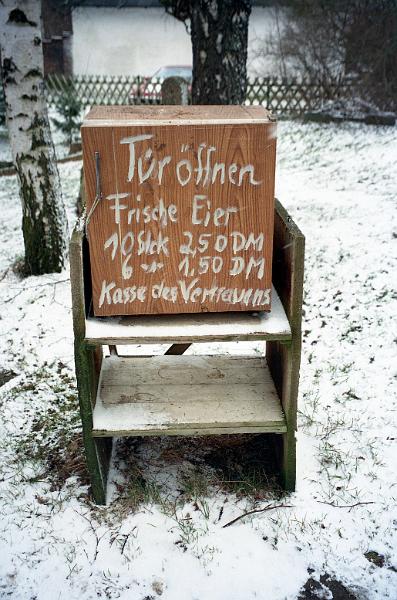 Tür öffnen
Frische Eier
10 Stck 2,50 DM
6 -"- 1,50 DM
Kasse des Vertrauens